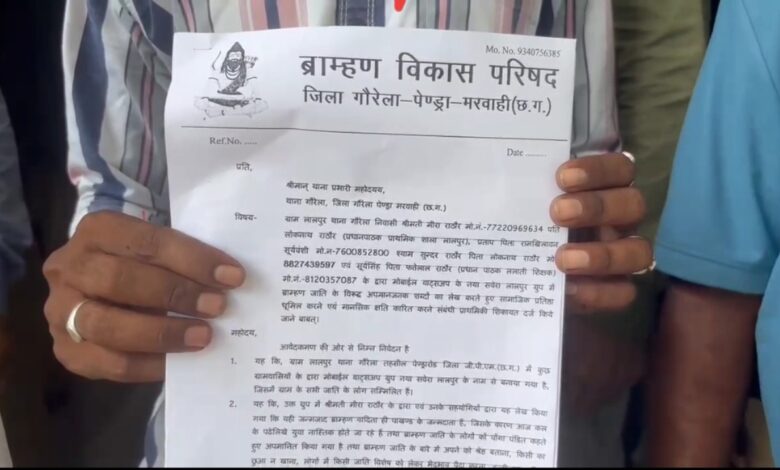 Mo. No. 9340756385
ब्राम्हण विकास परिषद
जिला गौरेला-पेण्ड्रा-मरवाही(छ.ग.)
Ref.No. .....
Date ..........
प्रति,
श्रीमान् थाना प्रभारी महोदय,
थाना गौरेला, जिला गौरेला पेण्ड्रा मरवाही (छ.ग.)
विषय- ग्राम लालपुर थाना गौरेला निवासी श्रीमती मीरा राठौर मो.नं.-77220969634 पति
लोकनाथ राठौर (प्रधानपाठक प्राथमिक शाला लालपुर), प्रताप पिता रामखिलावन
सूर्यवंशी मो.न-7600852800 श्याम सुन्दर राठौर पिता लोकनाथ राठौर मो
8827439597 एवं सूर्यसिंह पिता फतेलाल राठौर (प्रधान पाठक शिक्षक)
मो.नं.-8120357087 के द्वारा मोबाईल वाट्सअप के नया सवेरा लालपुर ग्रुप में
ब्राम्हण जाति के विरूद्ध अपमानजनक शब्दों का लेख करते हुए सामाजिक प्रतिष्ठा
धूमिल करने एवं मानसिक क्षति कारित करने संबंधी प्राथमिकी शिकायत दर्ज किये
जाने बाबत्।
महोदय,
आवेदकगण की ओर से निम्न निवेदन है
1. यह कि, ग्राम लालपुर थाना गौरेला तहसील पेण्ड्रारोड जिला जी.पी.एम.(छ.ग.) में कुछ
ग्रामवासियों के द्वारा मोबाईल वाट्सअप ग्रुप नया सवेरा लालपुर के नाम से बनाया गया है,
जिसमें ग्राम के सभी जाति के लोग सम्मिलित हैं।
2. यह कि, उक्त ग्रुप में श्रीमती मीरा राठौर के द्वारा एवं उनके सहयोगियों द्वारा यह लेख किया
गया कि यही जन्मजाद ब्राम्हण वादिता ही पाखण्ड के जन्मदाता हैं, जिसके कारण आज कल
के पढेलिखे युवा नास्तिक होते जा रहे हैं तथा ब्राम्हण जाति के लोगों को पोंगा पंडित कहते
हुए अपमानित किया गया है तथा ब्राम्हण जाति के बारे में अपने को श्रेष्ठ बताना, किसी का
छुआ न खाना, लोगों में किसी जाति विशेष को लेकर भेदभाव पैदा करना